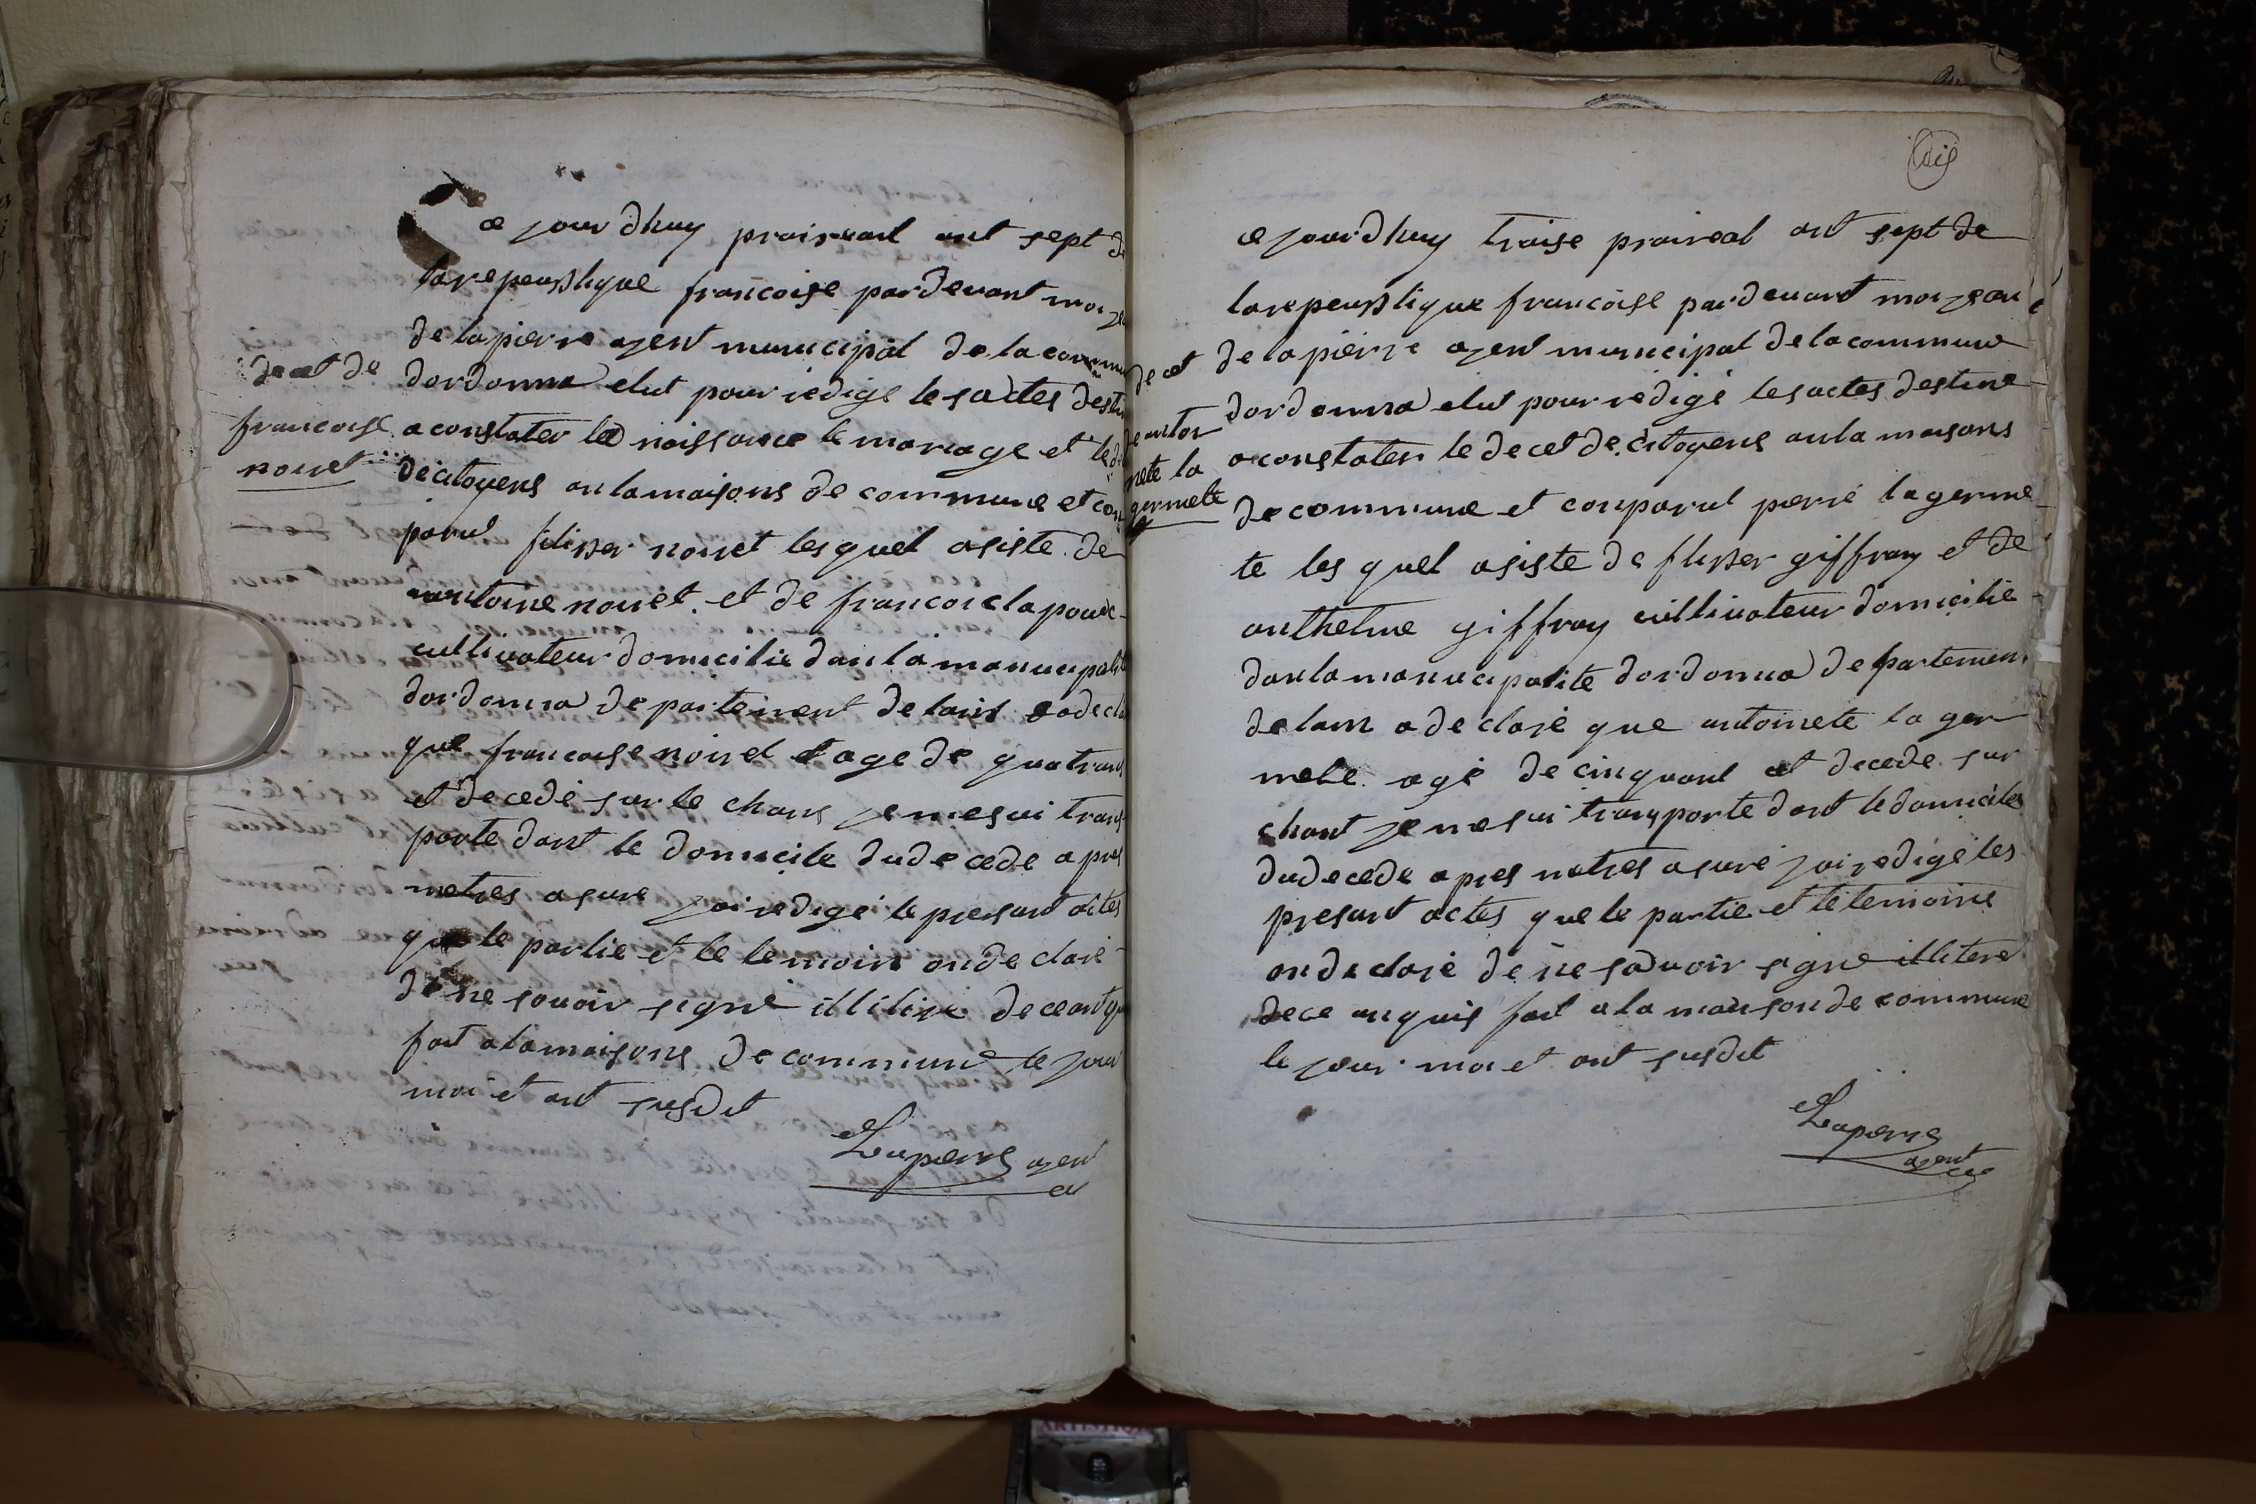 ce jour dhuy praireail ant sept de
larepeusblique francoise pardevant moi
de lapierre agent municipal de la commu
dordonna elut pour redigé les actes destin
a constater le naissance le mariage et le
de citoyens an la maisons de commune et con
parut filiser noiret les quel asiste de
antoine noiret et de francois clapoux
cultivateur domicilie dan la manucipalit
dordonna departement delain a decla
que francoise noiret et age de quatrant
et decedé sur le chans je me sui trans
porte dant le domicile du decede apres
metres asure jai redigé le presant actes
que le partie et le temoin on de claré
de ne savoir signé illitire de ce anqu
fait a la maisons de commune le jour
moi et ant susdit
Lapierre agent
decet de
francoise
noiret
dix
ce jour dhuy traise praireal ant sept de
larepeusblique francoise pardevant moi jean
de lapierre agent municipal de la commune
dordonna elut pour redigé les actes destine
a constater le decet de citoyens an la maisons
de commune et conparut perré lagerme
te les quel asiste de fliser giffray et de
anthelme giffray cultivateur domicilie
dan la manucipalite dordonna departemen
delain a declaré que antoinete la ger
mete agé de cinquant et decede sur
chant je me sui transporte dant le domicile
du decede apres metres asuré jai redigé les
presant actes que le partie et le temoins
on de claré de ne savoir signé illitere
de ce anquis fait a la maison de commune
le jour moi et ant susdit
Lapierre
agent
decet
de antoi
nete la
germete